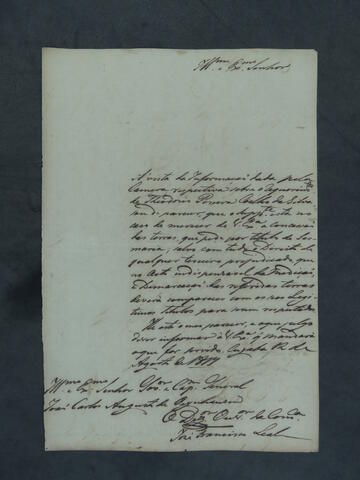 Illmo. e Exmo. Senhor
A vista da Informação dada pela
Camera respectiva sobre o requerimto.
de Theodorio Pereira Coelho da Silva
sou de parecer, que o Suppe. está no
cazo de merecer de V. Exa. a concessão
das terras, que pede por titulo de Ses
maria, salvo com tudo o Direito de
qualquer terceiro prejudicado que
no Acto indispensavel da Medição
e Demarcação das referidas terras
deverá comparecer com os seus Legi
timos titulos para sua
He este o meu parecer, e o que julgo
dever informar a V. Exa. q. mandará
o que for servido. Cuyabá 12 de
Agosto de 1819
Illmo. e Exmo.
Senhor Govor. e Cap. General
João Carlos Augusto de Oeynhausen
O Dezor. Ouvor. da Comca.
José Francisco Leal